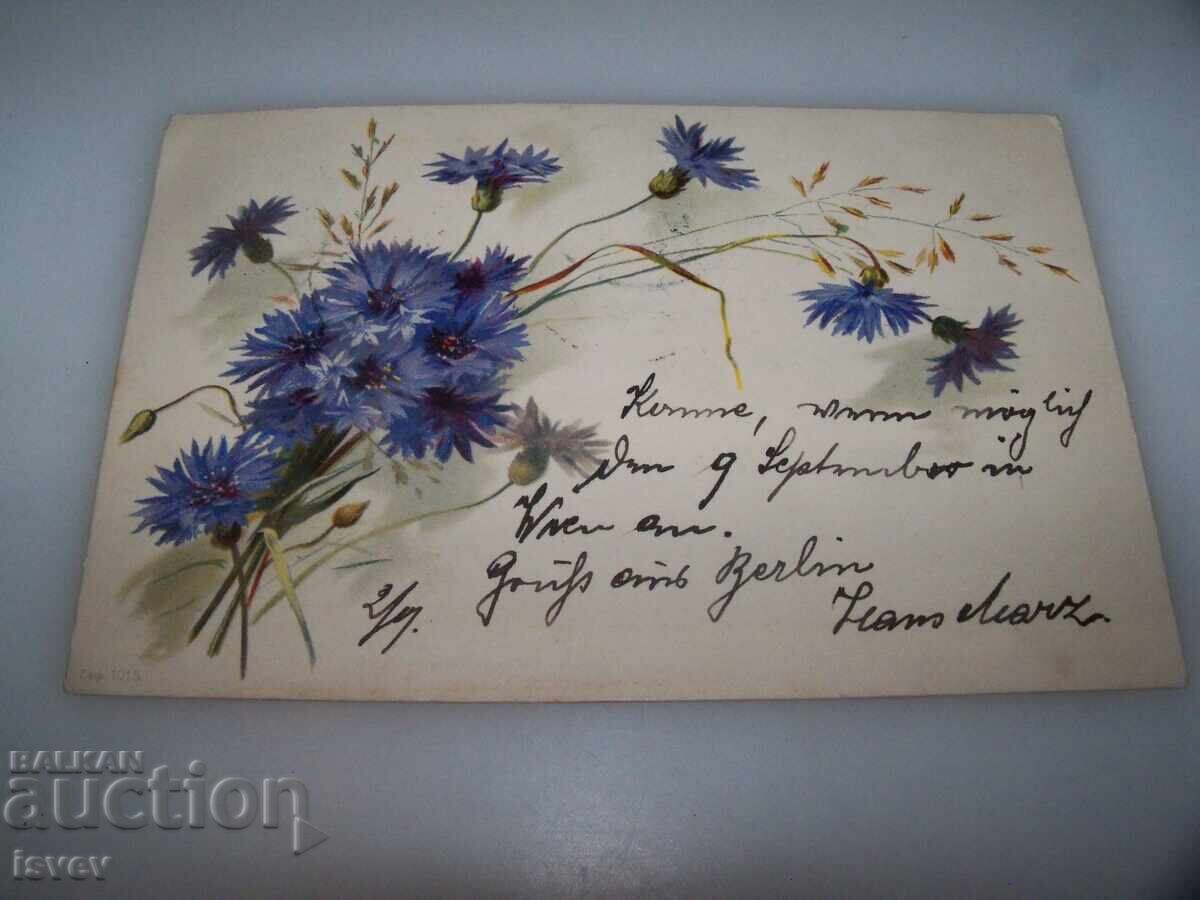 Komme, wenn möglich
den 9 September in
Wien an.
Gruß aus Berlin
2/9. Hans Marz.
1015.
BALKAN
auction
isvev